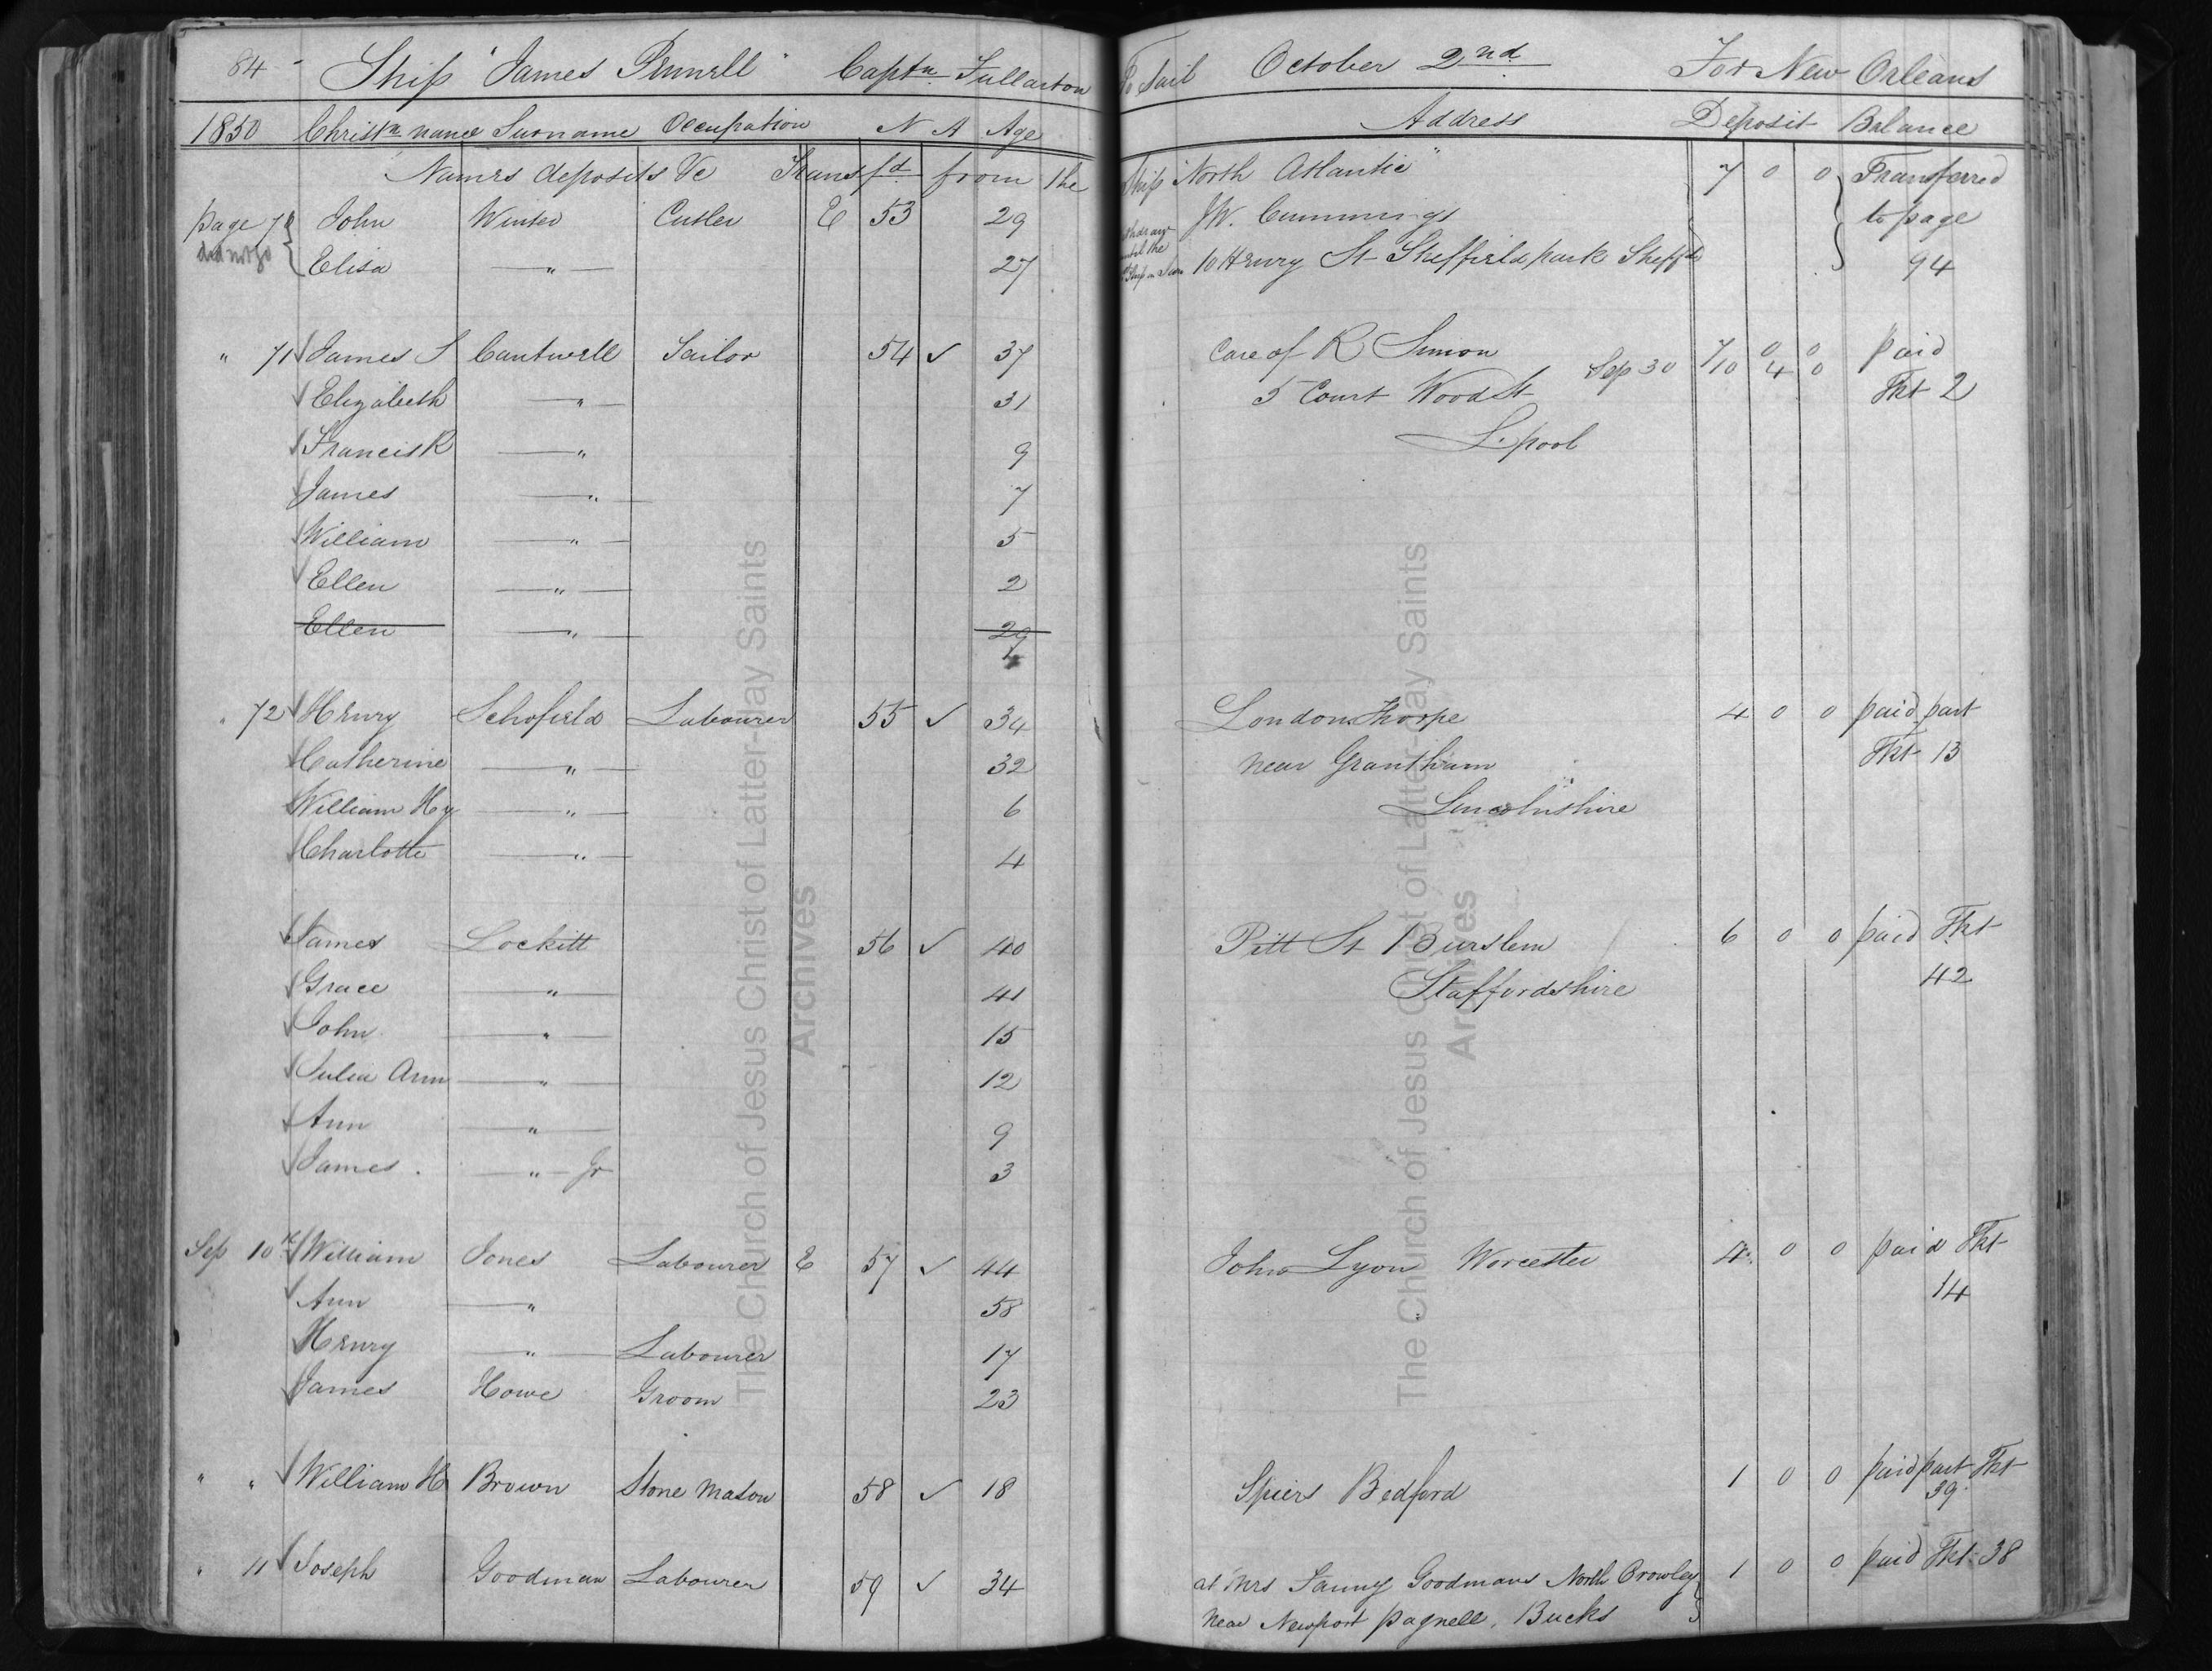 84 Ship "James Pennell" Captn Fullarton To Sail October 2nd For New Orleans
1850 Christn name Surname Occupation N A Age Address Deposit Balance
Names deposits &c Transfd from the Ship "North Atlantic" 7 0 0 Transferred
page 70 John Winter Cutler E 53 29 JW. Cummings to page
did not go Elisa " 27 10 Henry St Sheffield park Sheffd 94
" 71 James S Cantwell Sailor 54 ✓ 37 Care of R Simon 7 0 0 paid
Sep 30 10 4 0
Elizabeth " 31 5 Court Wood St Tkt 2
Francis R " 9 L.pool
James " 7
William " 5
Ellen " 2
Ellen " 29
" 72 Henry Schofield Labourer 55 ✓ 34 London Thorpe 4 0 0 paid part
Catherine " 32 near Grantham Tkt 13
William Hy " 6 Lincolnshire
Charlotte " 4
James Lockitt 56 ✓ 40 Pitt St Burslem 6 0 0 paid Tkt
Grace " 41 Staffordshire 42
John " 15
Julia Ann " 12
Ann " 9
James " Jr 3
Sep 10th William Jones Labourer E 57 ✓ 44 John Lyon Worcester 4 0 0 paid Tkt
Ann " 58 14
Henry " Labourer 17
James Howe Groom 23
" " William H Brown Stone Mason 58 ✓ 18 Spiers Bedford 1 0 0 paid part Tkt
39
" 11 Joseph Goodman Labourer 59 ✓ 34 at Mrs Fanny Goodmans North Crowley 1 0 0 paid Tkt 38
near Newport pagnell. Bucks
The Church of Jesus Christ of Latter-day Saints
Archives
The Church of Jesus Christ of Latter-day Saints
Archives